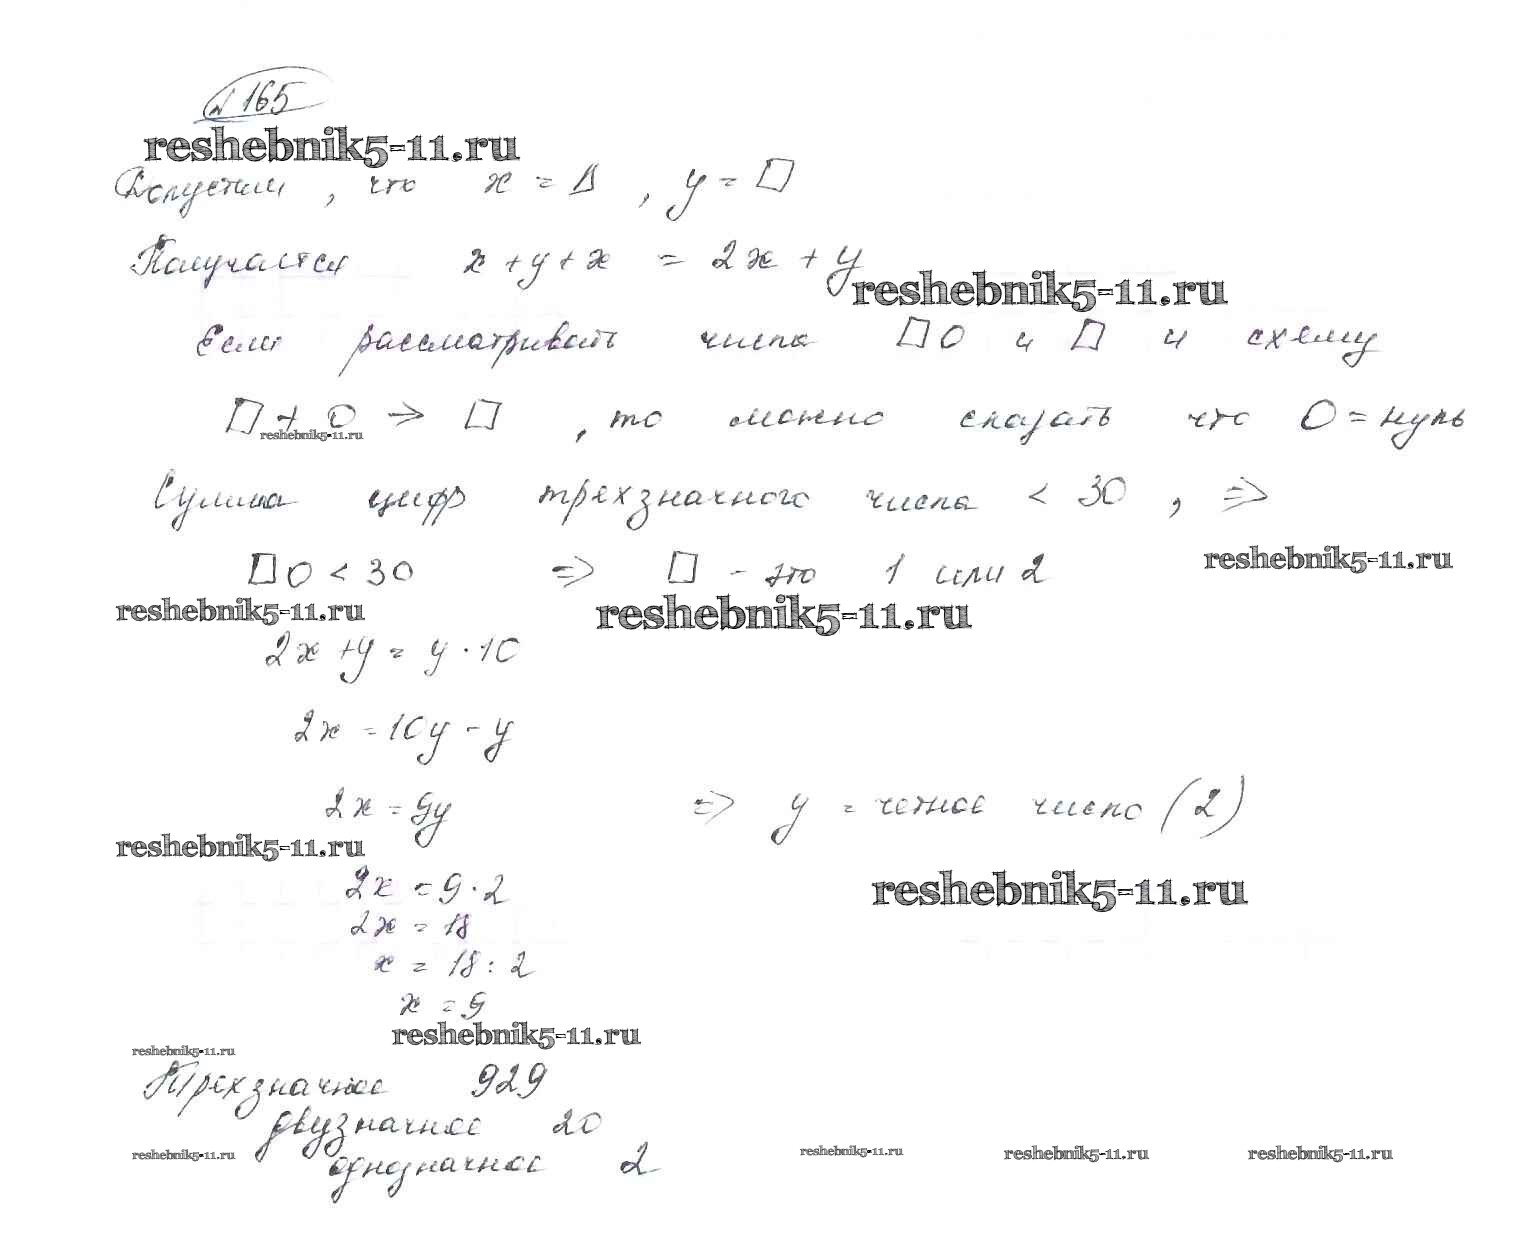 № 165
reshebnik5-11.ru
Допустим, что x = Δ, y = □
Получается x + y + x = 2x + y
reshebnik5-11.ru
Если рассматривать числа □0 и □ и схему
□ + 0 → □, то можно сказать что 0 = нуль
reshebnik5-11.ru
Сумма цифр трехзначного числа < 30, ⇒
□0 < 30 ⇒ □ - это 1 или 2
reshebnik5-11.ru
reshebnik5-11.ru
reshebnik5-11.ru
2x + y = y · 10
2x = 10y - y
2x = 9y ⇒ y = четное число (2)
reshebnik5-11.ru
2x = 9 · 2
reshebnik5-11.ru
2x = 18
x = 18 : 2
x = 9
reshebnik5-11.ru
reshebnik5-11.ru
Трехзначное 929
двузначное 20
однозначное 2
reshebnik5-11.ru
reshebnik5-11.ru
reshebnik5-11.ru
reshebnik5-11.ru